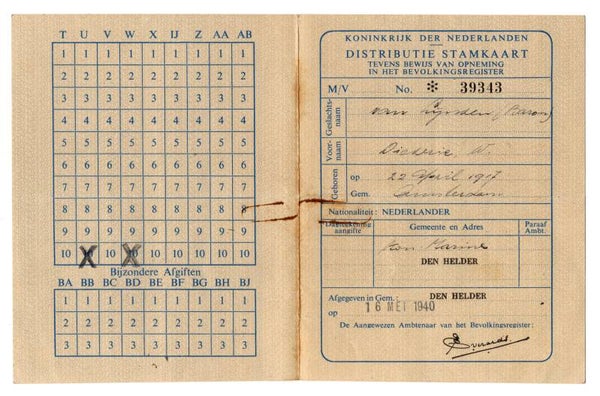 T U V W X Y Z AA AB
1 1 1 1 1 1 1 1 1
2 2 2 2 2 2 2 2 2
3 3 3 3 3 3 3 3 3
4 4 4 4 4 4 4 4 4
5 5 5 5 5 5 5 5 5
6 6 6 6 6 6 6 6 6
7 7 7 7 7 7 7 7 7
8 8 8 8 8 8 8 8 8
9 9 9 9 9 9 9 9 9
10 X 10 X 10 10 10 10 10
Bijzondere Afgiften
BA BB BC BD BE BG BH BJ
1 1 1 1 1 1 1 1
2 2 2 2 2 2 2 2
3 3 3 3 3 3 3 3
KONINKRIJK DER NEDERLANDEN
DISTRIBUTIE STAMKAART
TEVENS BEWIJS VAN OPNEMING
IN HET BEVOLKINGSREGISTER
M/V No. * 39343
Geslachtsnaam van (Baron)
Voornaam W.
Geboren op 22 April 1917
Gem. Amsterdam
Nationaliteit: NEDERLANDER
Dagteekening aangifte Gemeente en Adres Paraaf Ambt.
Kon. Marine
DEN HELDER
Afgegeven in Gem.: DEN HELDER
op 16 MEI 1940
De Aangewezen Ambtenaar van het Bevolkingsregister: